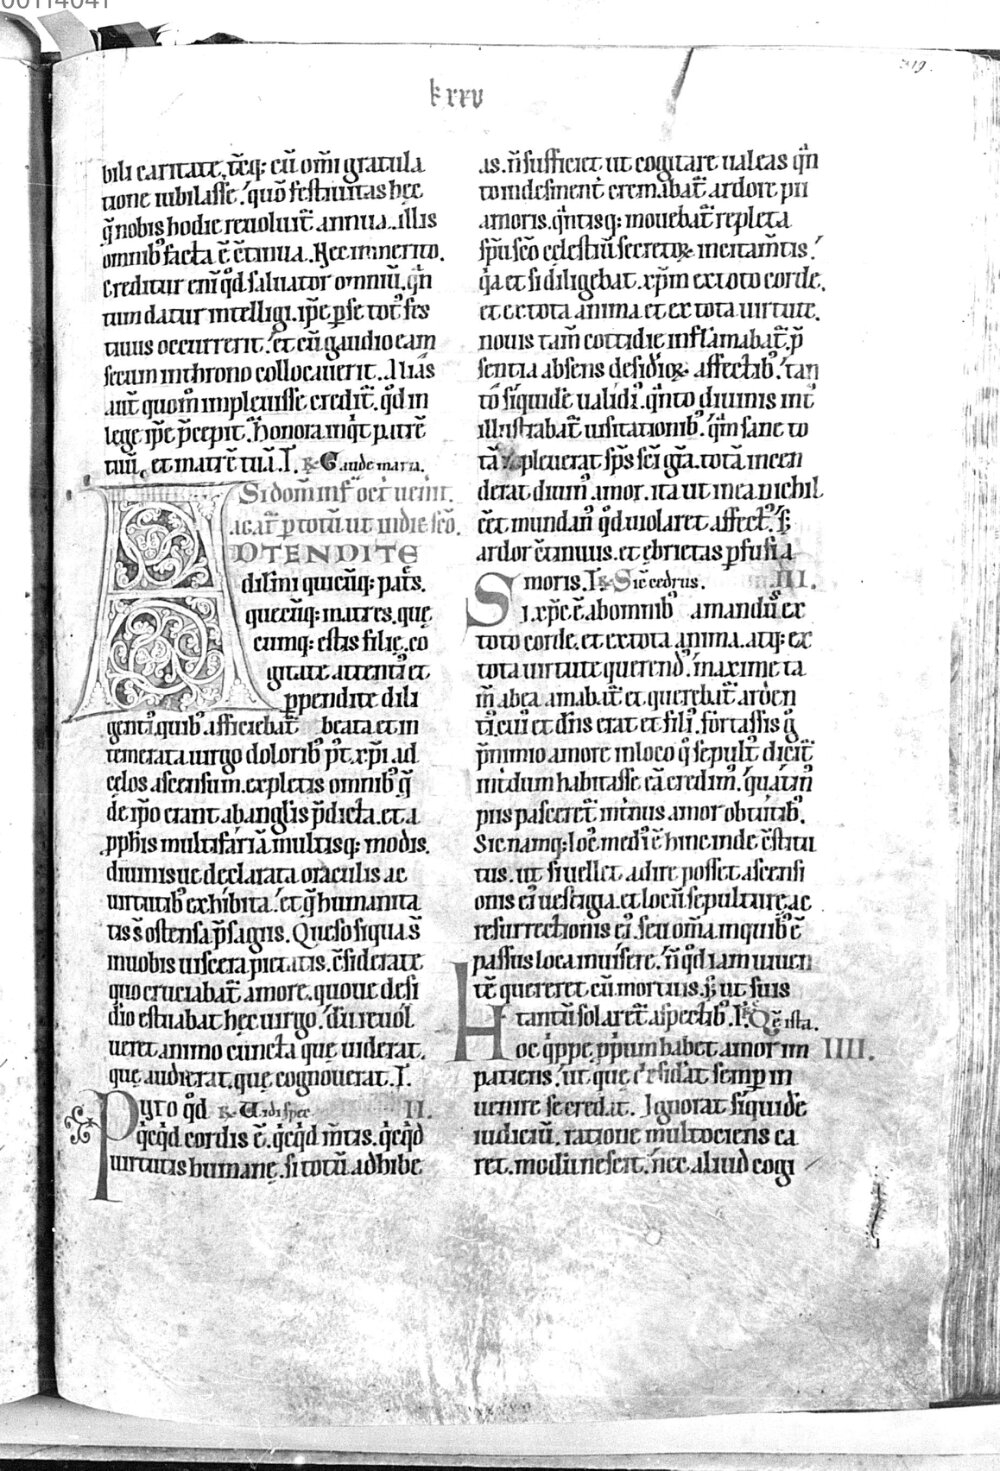 00114041
lxxv
bili caritate. t̄eq: cū om̄i gratula
tione iubilasse. quō festiuitas hęc
q̄ nobis hodie reuoluit̄ annua. illis
omnib; facta ē c̄tinua. Nec inmerito.
Creditur eni qđ saluator omniū. q̄n
tum datur intelligi. ip̄e p se tot̄ fes
tiuus occurrerit. et cū gaudio eam
secum inthrono collocauerit. Alias
aut̄ quom̄ impleuisse credit̄. qđ in
lege ip̄e p̄cepit. Honora inq̄t patrē
tuū. et matrē tuā. I. R. Gaude maria.
Si dom̄
ADTENDITE
dilim̄i quicūq: pat̄s.
quecūq: matres. quę
cumq: estis filię. co
gitate attenti et
ppendite dili
genti. quib; afficiebat̄ beata et in
temerata uirgo dolorib; p̄t xp̄i ad
cęlos ascensum. expletis omnib; q̄
de ip̄o erant ab anglis p̄dicta. et a
pphis multifariā multisq: modis.
diuinisue declarata oraculis ac
uirtutib; exhibita. et q̄ humanita
tis s̄ ostensa p̄sagiis. Queso siqua s̄
in uobis uiscera pietatis. c̄siderate
quo cruciabat̄ amore. quoue desi
dio estuabat hęc uirgo. dū reuol
ueret animo cuncta que uiderat.
quę audierat. quę cognouerat. I.
Puto qđ R. Uidi spec II.
q̄cqđ cordis ē. q̄cqđ m̄tis. q̄cqđ
uirtutis humanę. si totū adhibe
as. n̄ sufficiet ut cogitare ualeas q̄n
to indesinent̄ cremabat̄ ardore pii
amoris. q̄ntisq: mouebat̄ repleta
sp̄u sc̄o cęlestiū secretoꝝ incitam̄tis.
q̄a et si diligebat xp̄m ex toto corde.
et ex tota anima et ex tota uirtute.
nouis tam̄ cottidie inflāmabat̄. p̄
sentia absens desidioꝝ affectib; tan
tō siquidē ualidi. q̄nto diuinis int̄
illustrabat̄ uisitationib; q̄m sane to
tā repleuerat sp̄s sc̄i gr̄a. totā incen
derat diuin; amor. ita ut in ea nichil
cēt mundan; qđ uiolaret affect;. s;
ardor c̄tinuus. et ebrietas pfusi a
moris. I. R. Sic cedrus. III.
Si xp̄c ē ab omnib; amandus ex
toto corde. et ex tota anima. atq: ex
tota uirtute querend;. maxime ta
m̄ ab ea amabat̄ et querebat̄ arden
ti; cui; et d̄ns erat et fili;. fortassis q̄
p̄ nimio amore in loco q̄ sepult; dicit̄
int̄dum habitasse eā credim;. quatin;
piis pasceret̄ intinus amor obtutib;.
Sic namq: loc; medi; ē hinc inde c̄stitu
tus. ut si uellet adire posset ascensi
onis ei; uestigia. et locū sepulturę. ac
resurrectionis ei;. seu om̄a in quib; ē
passus loca inuisere. n̄ qđ iam uiuen
tē quereret cū mortuis. s; ut suis
tantū solaret̄ aspectib;. I. R. Quę ē ista.
Hoc q̄ppe pp̄ium habet amor im IIII.
patiens. ut quę desidat semp in
uenire se credat. Ignorat siquidē
iudiciū. ratione multociens ca
ret. modū nescit. nec aliud cogi